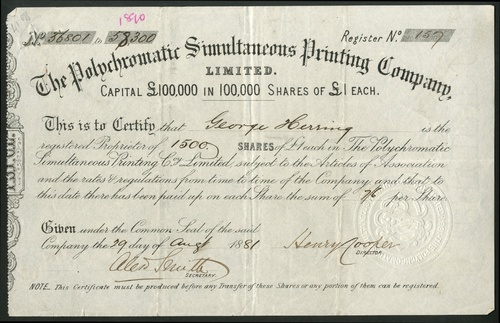 1890
No. 56801 to 58300 Register No. 157
The Polychromatic Simultaneous Printing Company,
LIMITED.
CAPITAL £100,000 IN 100,000 SHARES OF £1 EACH.
This is to Certify that George Herring is the
registered Proprietor of 1500 SHARES of £1 each in The Polychromatic
Simultaneous Printing Co. Limited, subject to the Articles of Association
and the rates & regulations from time to time of the Company and that to
this date there has been paid up on each Share the sum of per Share
Given under the Common Seal of the said
Company the 29 day of Augt 1881 Henry Cooper
DIRECTOR.
Alexr Smith
SECRETARY.
NOTE. This Certificate must be produced before any Transfer of these Shares or any portion of them can be registered.